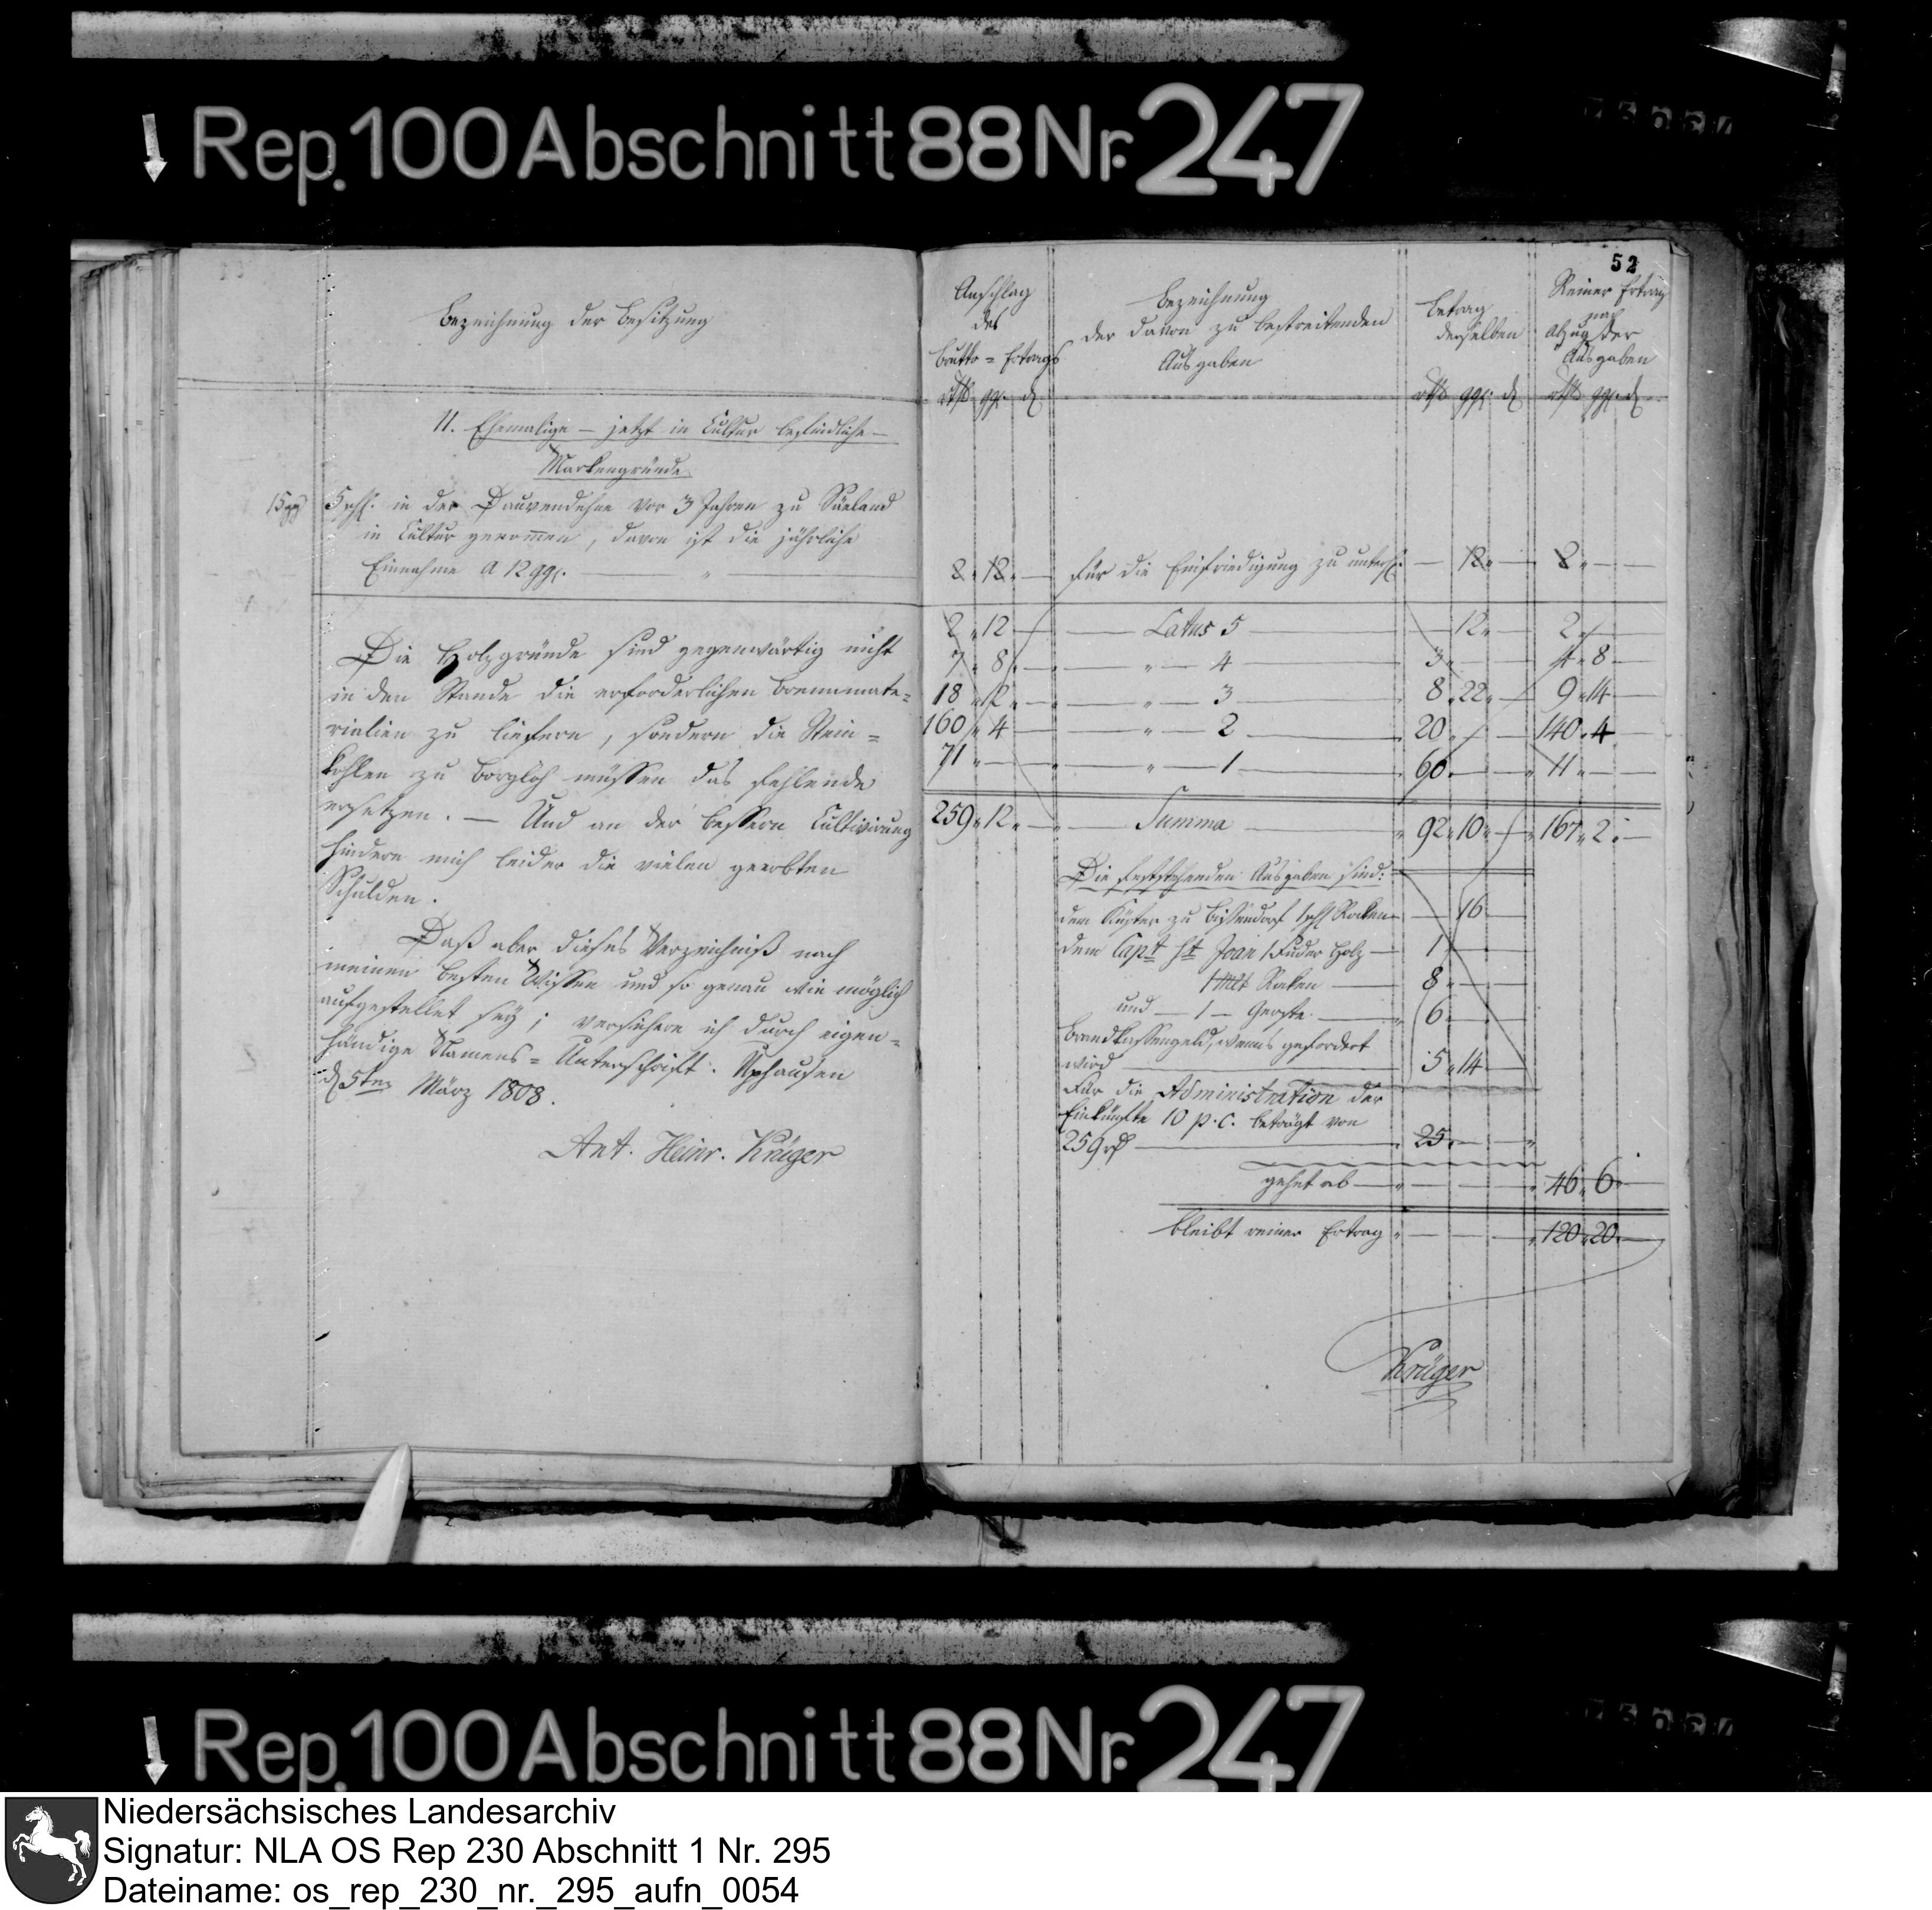 Rep. 100 Abschnitt 88 Nr. 247
Bezeichnung der Besitzung
11. Ehemalige – jetzt in Cultur befindliche –
Markengründe
5 schfs. in der Dauvendehne vor 3 Jahren zu Säeland
in Cultur genommen, davon ist die jährliche
Einnahme a 12 ggl. — "
Die Holzgründe sind gegenwärtig nicht
in den Stande die erforderlichen Brennmate=
rialien zu liefern, sondern die Stein=
kohlen zu Borgloh müssen das fehlende
ersetzen. — Und an der bessern Cultivirung
hindern mich leider die vielen geerbten
Schulden.
Daß aber dieses Verzeichniß nach
meinen besten Wissen und so genau wie möglich
aufgestellet sey; versichere ich durch eigen=
händige Namens=Unterschrift. Uphausen
d 5ten März 1808.
Ant. Heinr. Krüger
52
Anschlag
des
Brutto=Ertrags
rthl ggl. d
Bezeichnung
der davon zu bestreitenden
Ausgaben
Betrag
derselben
rthl ggl. d
Reiner Ertrag
nach
Abzug der
Ausgaben
rthl ggl. d
2 " 12 " — für die Einfriedigung zu unterh. — 12 " — 2 " —
2 " 12 — Latus 5 — 12 " — 2 " —
7 " 8 " — " — 4 — 3 " — 4 " 8 —
18 " 12 " — " — 3 — 8 " 22 " — 9 " 14 —
160 " 4 — " — 2 — 20 " — 140 " 4 —
71 " — " — 1 — 60 " — 11 " —
259 " 12 " — Summa — 92 " 10 " — 167 " 2 " —
Die feststehenden Ausgaben sind:
dem Küster zu Bissendorf 1 schfl Rocken — 16 —
dem Capt St Joan 1 Fuder Holz — 1 —
1 Mlt Rocken — 8 " —
und — 1 — Gerste — 6 —
Brandkassengeld, wenns gefordert
wird — 5 " 14 —
Für die Administration der
Einkünfte 10 p. C. beträgt von
259 rthl — 25 " — "
gehet ab — " — " 46 " 6 " —
bleibt reiner Ertrag " — " 120 " 20 " —
Krüger
Rep. 100 Abschnitt 88 Nr. 247
Niedersächsisches Landesarchiv
Signatur: NLA OS Rep 230 Abschnitt 1 Nr. 295
Dateiname: os_rep_230_nr._295_aufn_0054